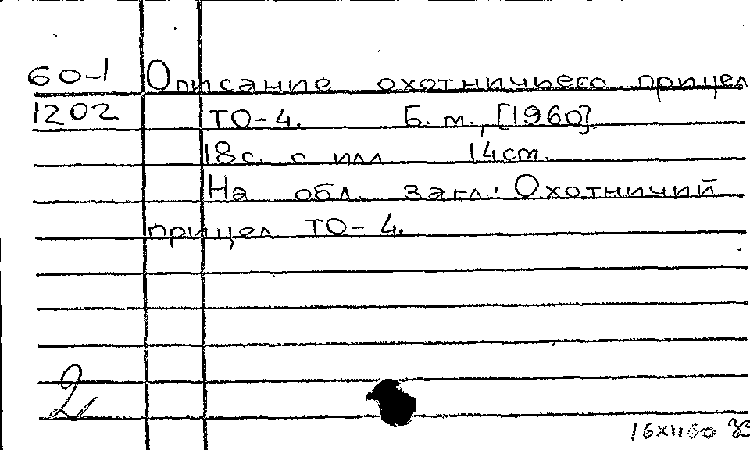 60-1 Описание охотничьего прицел
1202 ТО-4. Б. м., [1960].
18с. с илл 14см.
На обл. загл: Охотничий
прицел ТО-4.
2